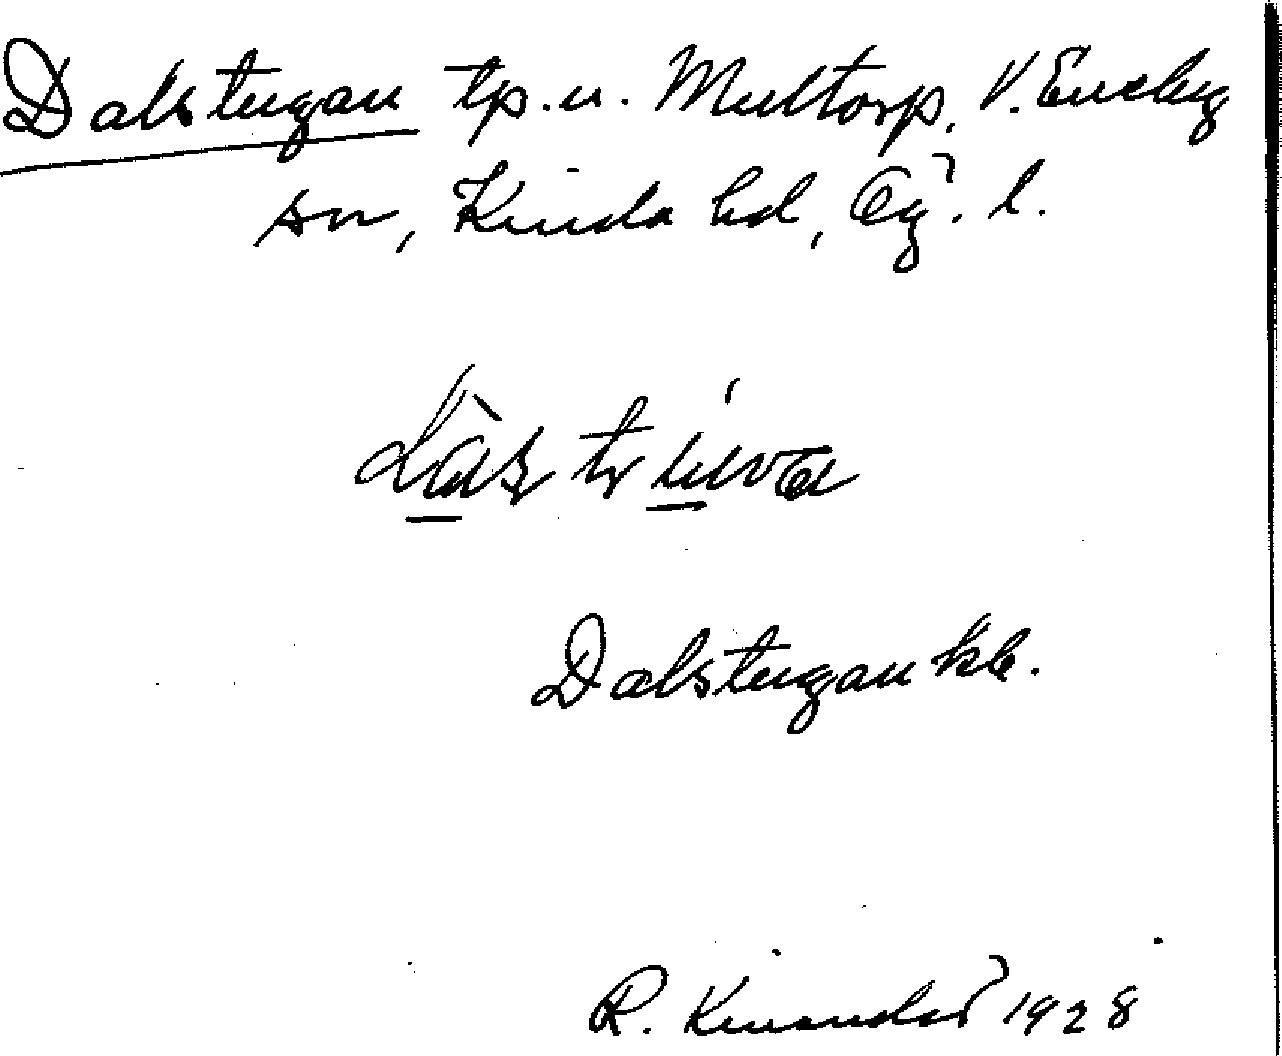 Dalstugan tp.u. Multorp, V. Eneby
sn, Kinda hd, Ög. l.
Dalstugan kb.
R. Kinander 1928